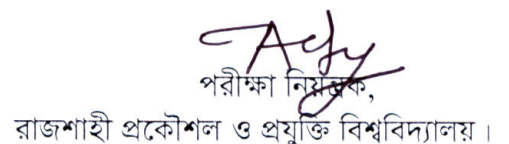 পরীক্ষা নিয়ন্ত্রক,
রাজশাহী প্রকৌশল ও প্রযুক্তি বিশ্ববিদ্যালয়।